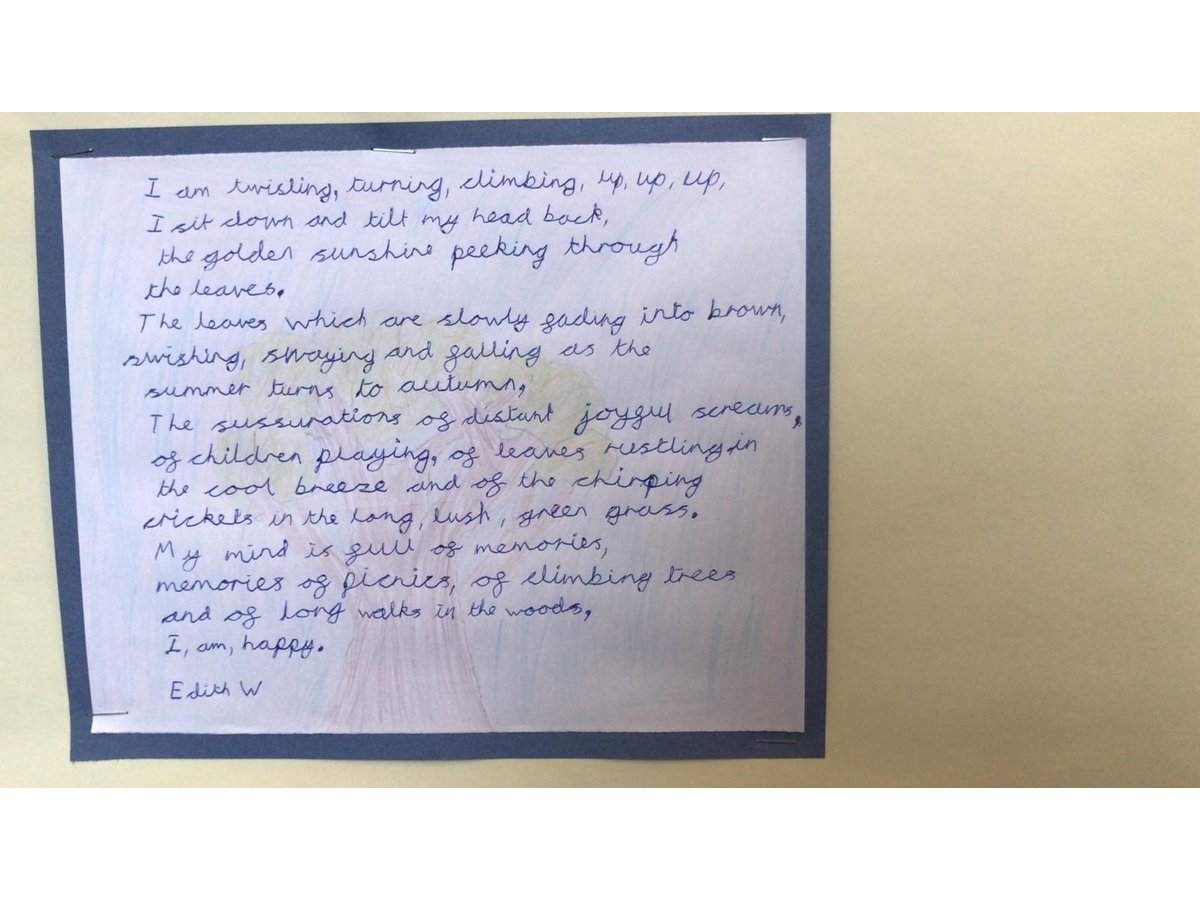 I am twisting, turning, climbing, up, up, up,
I sit down and tilt my head back,
the golden sunshine peeking through
the leaves.
The leaves which are slowly fading into brown,
swishing, swaying and falling as the
summer turns to autumn,
The sussurations of distant joyful screams,
of children playing, of leaves rustling in
the cool breeze and of the chirping
crickets in the long, lush, green grass.
My mind is full of memories,
memories of picnics, of climbing trees
and of long walks in the woods,
I, am, happy.
Edith W